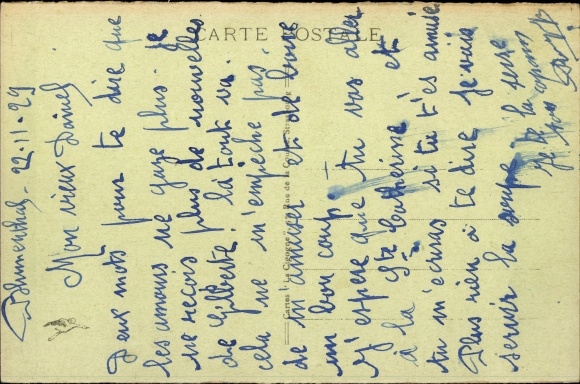 CARTE POSTALE
Blumenthal - 22.11.29
Mon vieux Daniel
Deux mots pour te dire que
les amours ne gaze plus. Je
ne reçois plus de nouvelles
de Gilberte. Là tout va.
cela ne m'empêche pas
de m'amuser et de boire
un bon coup. Tu vas aller
J'espère que
à la Ste Catherine et
tu m'ecriras si tu t'es amusé
Plus rien à te dire je vais
servir la soupe
je te la serre
Cartes "La Cigogne" Rue de la